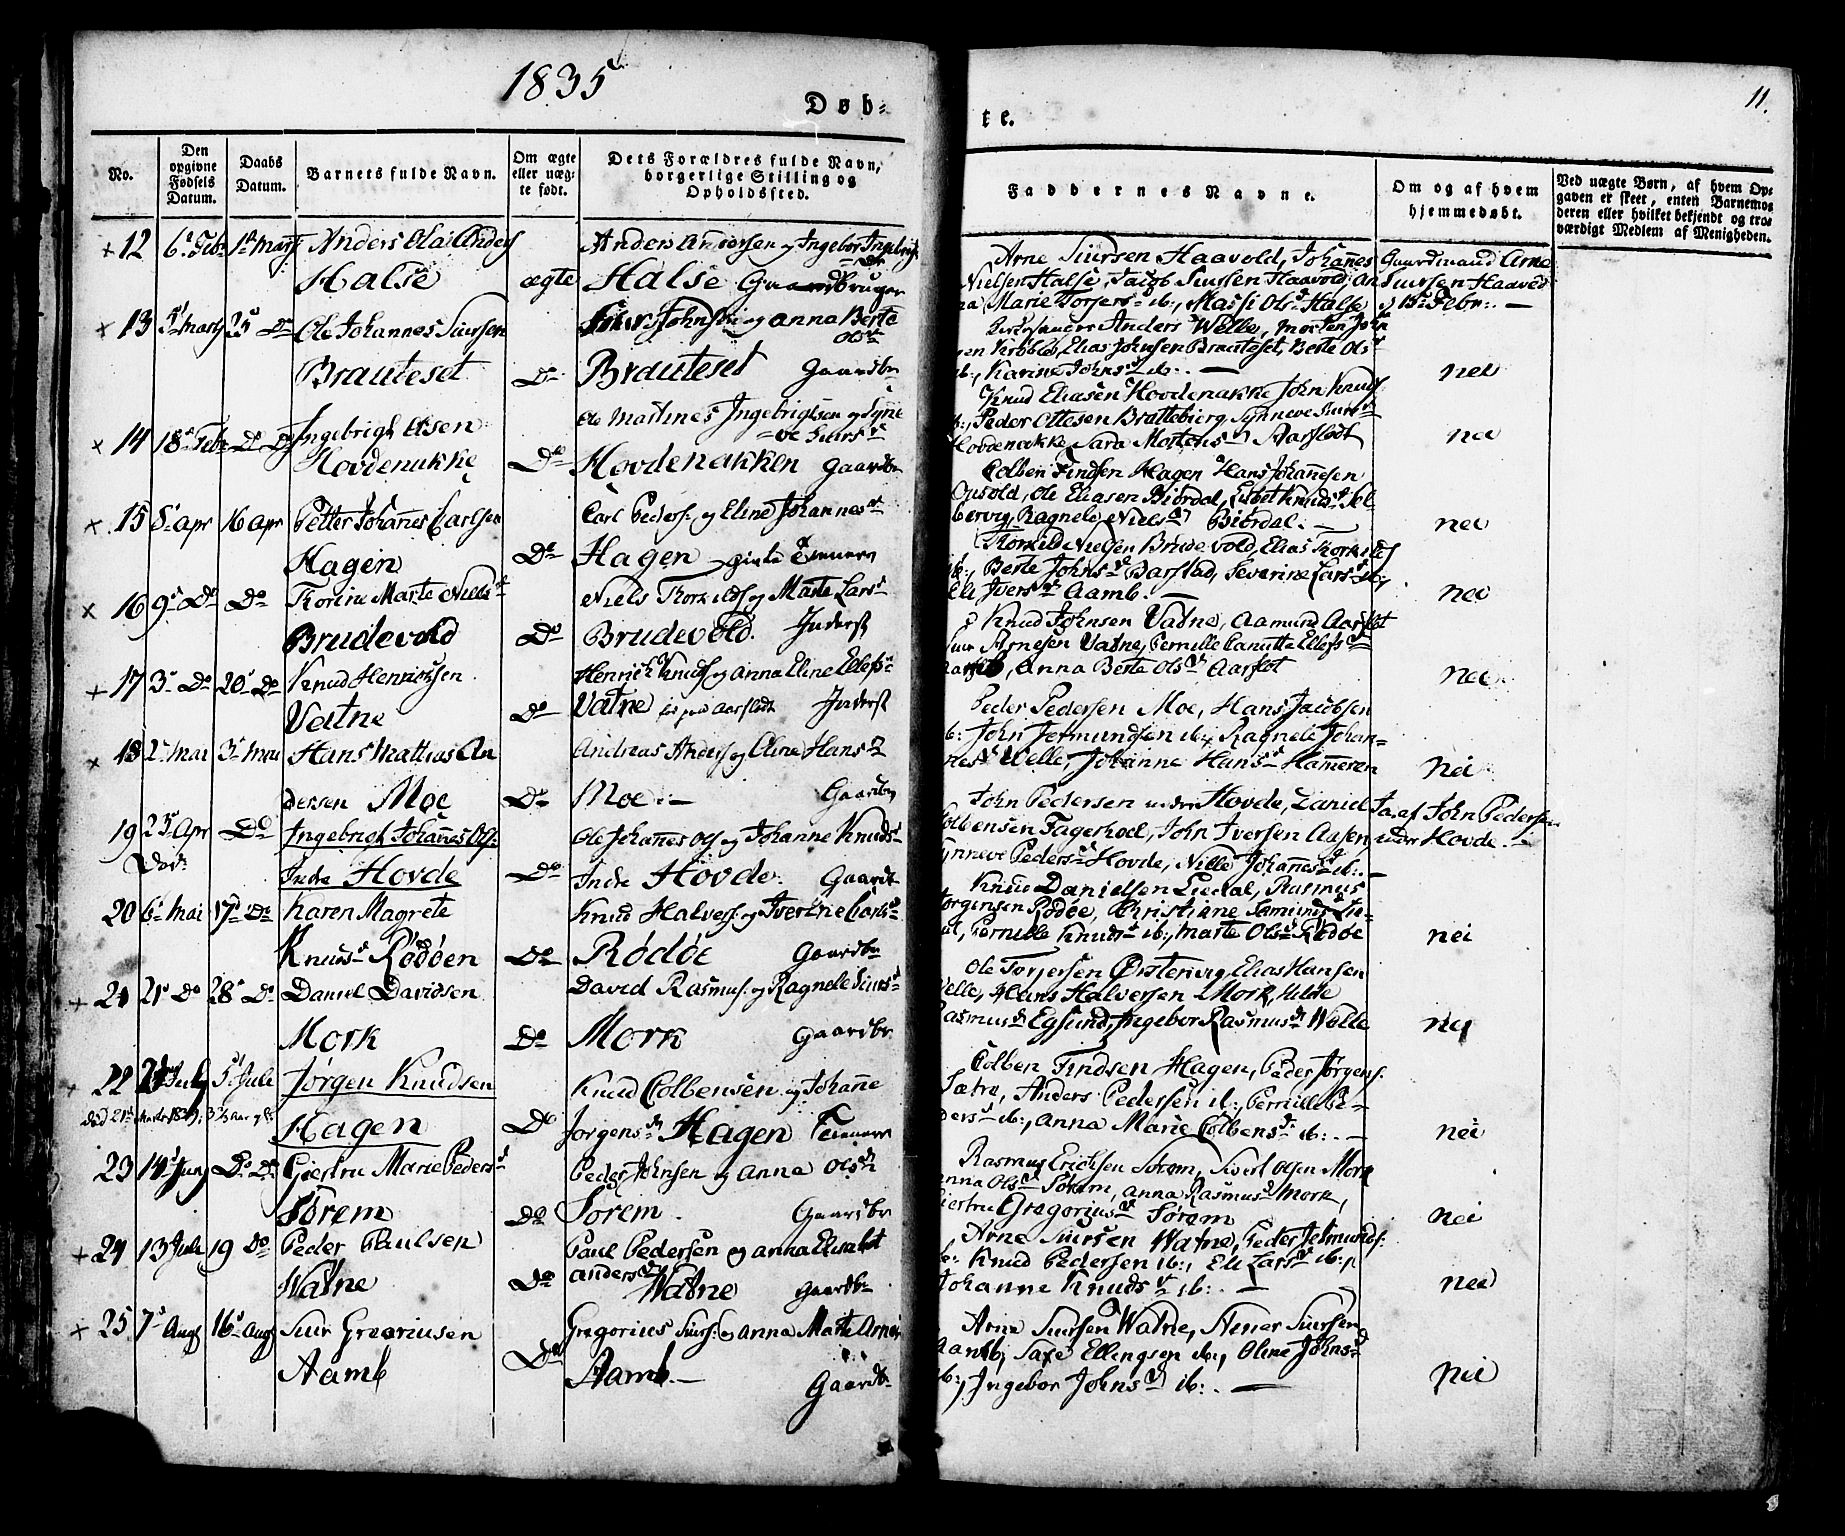 1835
11.
Døb-
te.
No.
Den opgivne Fødsels Datum.
Daabs Datum.
Barnets fulde Navn.
Om ægte eller uæg-te født.
Dets Forældres fulde Navn, borgerlige Stilling og Opholdssted.
Faddernes Navne.
Om og af hvem hjemmedøbt.
Ved uægte Børn, af hvem Op-gaven er skeet, enten Barnemo-deren eller hvilket bekjendt og tro-værdigt Medlem af Menigheden.
12 6te Febr 1ste Marts Anders Olai Anders
Halse ægte
Anders Andersen og Ingebor Ingebrigts
Halse Gaardbruger
Arne Siursen Haavold, Johannes
Nielsen Halse, Jacob Siursen Haavold, An
na Marie Torgers ib:, Massi Ols Halse
Gaardmand Arne
Siursen Haavold
13 Ole Johannes Siursen
Brauteset Do
og Anna Berte
Ols
Brauteset Gaardbr
Anders Welle, Morten John
sen Elias Johnsen Brauteset, Berte Ols
ib:, Karine Johns ib:. —
nei
14 18de Febr Do Do Ingebrigt Olsen
Hovdenakke Do
Ole Martines Ingebrigtsen og Synne
ve Siurs
Hovdenakken Gaardbr
Knud Eliasen Hovdenakke John Knuds
ib:, Peder Ottesen Brattebierg, Synneve Siurs
Hovdenakke, Sara Mortens Aarsflodt
nei
15 5te Apr 16 Apr Petter Johannes Carlsen
Hagen Do
Carl Peders: og Eline Johannes
Hagen
Colben Findsen Hagen Hans Johannesen
Opsold, Ole Eliasen Biørdal, Lisbet Knuds
bervig, Ragnele Niels Biørdal. —
nei
16 9de Do Do Marte Niels
Brudevold Do
Niels Torkilds og Marte Lars
Brudevold. Inderst
Torkild Nielsen Brudevold, Elias Torkilds
ib:, Berte Johns Barstad, Severine Lars ib:,
Eli Ivers Aamb. —
nei
17 3de Do 20de Do Knud Henriksen
Vatne Do
Henrich Knuds og Anna Eline Ellefs
Vatne Inderst
Knud Johnsen Vatne, Aamund Aarflot
Siur Arnesen Vatne, Pernille Canutte Ellefs
Aarflot, Anna Berte Ols Aarflot
nei
18 2de Mai 3de Mai Hans Mathias An
dersen Moe Do
Andreas Anders og Oline Hans
Moe. — Gaardbr
Peder Pedersen Moe, Hans Jacobsen
ib: John Jetmundsen ib:, Ragnele Johan-
nes Welle, Johanne Hans Hameren
nei
19 23de Apr Do Ingebrigt Johannes Ols:
Indre Hovde Do
Ole Johannes Ols og Johanne Knuds
Indre Hovde. Gaardb
John Pedersen indre Hovde, Daniel
Colbensen Fagerhoel, John Iversen Aasen
Synneve Peders Hovde, Nille Johannes ib:. —
Ja, af John Pedersen
indre Hovde.
20 6te Mai 17de Do Karen Magrete
Knuds Rødøen Do
Knud Halvors: og Iverine Carls
Rødøe Gaardbr
Knud Danielsen Liedal, Rasmus
Jørgensen Rødøe, Christiane
Pernille Knuds ib:, Marte Ols Rødøe
nei
21 21de Do 28de Do Daniel Davidsen
Mork Do
David Rasmus: og Ragnele Siurs
Mork Gaardbr
Ole Torgersen Ørstenvig, Elias Hansen
Welle, Hans Halvorsen Mork, Hilde
Rasmus Egsund, Ingebor Rasmus Welle
nei
22 5te Jule Jørgen Knudsen
Hagen Do
Knud Colbensen og Johanne
Jørgens Hagen
Colben Findsen Hagen, Peder Jørgens:
Sætre, Anders Pedersen ib:, Pernille Pe-
ders ib:, Anna Marie Colbens ib:. —
nei
23 14de Juny Do Do Giertru Marie Peders
Sørem Do
Peder Johnsen og Anna Ols
Sørem. Gaardbr
Rasmus Erichsen Sørem, Siurt Olsen Mork
Anna Ols Sørem, Anna Rasmus Mork,
Giertru Gregorius Sørem
nei
24 13 Jule 19 Do Peder Paulsen
Watne Do
Paul Pedersen og Anna Elisabet
Anders Watne Gaardbr
Arne Siursen Watne, Peder Jetmunds:
ib: Knud Pedersen ib:, Eli Lars ib:,
Johanne Knuds ib:. —
nei
25 7de Aug 16de Aug Siur Gregoriusen
Aamb Do
Gregorius Siurs: og Anna Marte Arnes
Aamb. — Gaardb
Arne Siursen Watne, Stener Siursen
Aamb, Saxe Ellingsen ib:, Oline Johns
ib:, Ingebor Johns ib:. —
nei